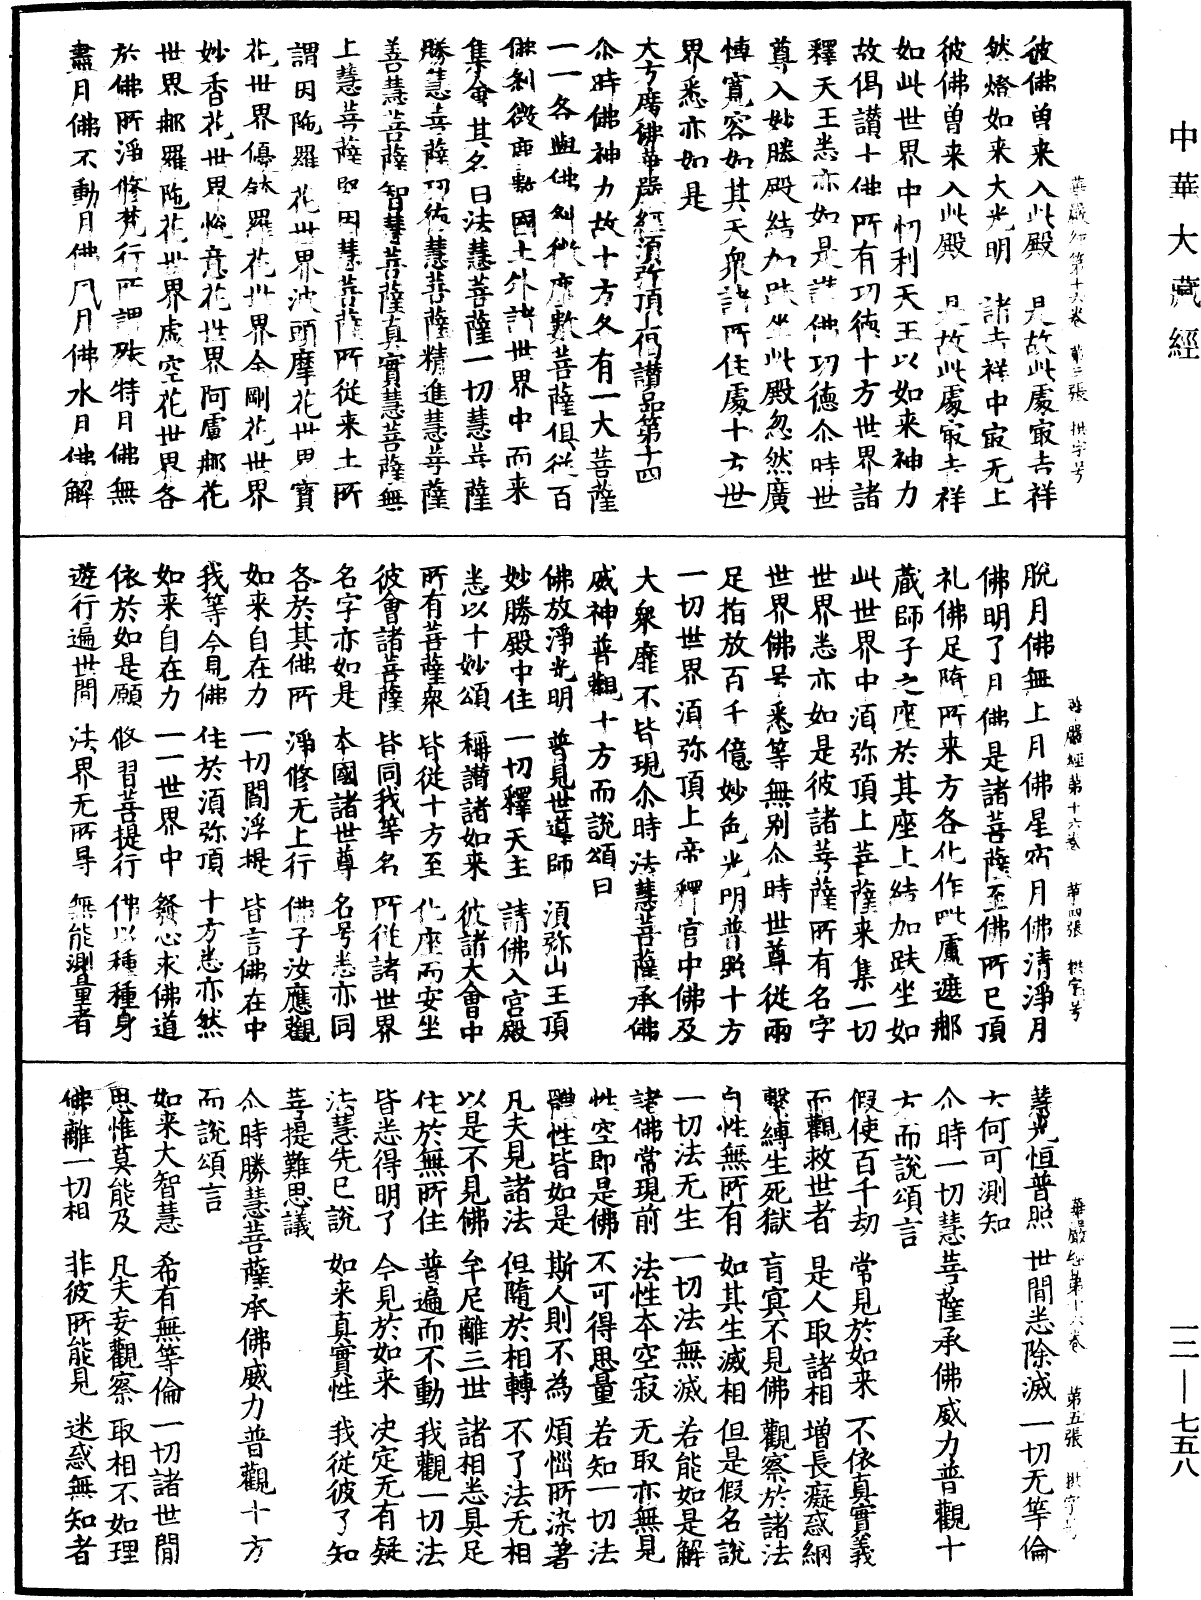 中華大藏經
一二—七五八
華嚴經第十六卷 第三張 拱字号
彼佛曽来入此殿 是故此處㝡吉祥
然燈如来大光明 諸吉祥中㝡无上
彼佛曽来入此殿 是故此處㝡吉祥
如此世界中忉利天王以如来神力
故偈讃十佛所有功徳十方世界諸
釋天王悉亦如是讃佛功德尒時世
尊入妙勝殿結加趺坐此殿忽然廣
博寛容如其天衆諸所住處十方世
界悉亦如是
大方廣佛華嚴經須弥頂上偈讃品第十四
尒時佛神力故十方各有一大菩薩
一一各與佛刹微塵數菩薩俱從百
佛刹微塵數國土外諸世界中而来
集會其名曰法慧菩薩一切慧菩薩
勝慧菩薩功德慧菩薩精進慧菩薩
善慧菩薩智慧菩薩真實慧菩薩無
上慧菩薩堅固慧菩薩所從来土所
謂因陁羅花世界波頭摩花世界寳
花世界優鉢羅花世界金剛花世界
妙香花世界悅意花世界阿盧那花
世界那羅陁花世界虛空花世界各
於佛所淨修梵行所謂殊特月佛無
盡月佛不動月佛風月佛水月佛解
華嚴經第十六卷 第四張 拱字号
脫月佛無上月佛星宿月佛清淨月
佛明了月佛是諸菩薩至佛所已頂
礼佛足隨所来方各化作毗盧遮那
藏師子之座於其座上結加趺坐如
此世界中須弥頂上菩薩来集一切
世界悉亦如是彼諸菩薩所有名字
世界佛号悉等無别尒時世尊從兩
足指放百千億妙色光明普照十方
一切世界須弥頂上帝釋宫中佛及
大衆靡不皆現尒時法慧菩薩承佛
威神普觀十方而說頌曰
佛放淨光明 普見世導師 須弥山王頂
妙勝殿中住 一切釋天主 請佛入宫殿
悉以十妙頌 稱讃諸如来 彼諸大會中
所有菩薩衆 皆從十方至 化座而安坐
彼會諸菩薩 皆同我等名 所從諸世界
名字亦如是 本國諸世尊 名号悉亦同
各於其佛所 淨修无上行 佛子汝應觀
如来自在力 一切閻浮提 皆言佛在中
我等今見佛 住於須弥頂 十方悉亦然
如来自在力 一一世界中 發心求佛道
依於如是願 修習菩提行 佛以種種身
遊行遍世間 法界无所㝵 無能測量者
華嚴經第十六卷 第五張 拱字号
慧光恒普照 世間悉除滅 一切无等倫
云何可測知
尒時一切慧菩薩承佛威力普觀十
方而說頌言
假使百千劫 常見於如来 不依真實義
而觀救世者 是人取諸相 增長癡惑網
繫縛生死獄 盲冥不見佛 觀察於諸法
自性無所有 如其生滅相 但是假名說
一切法无生 一切法無滅 若能如是解
諸佛常現前 法性本空寂 无取亦無見
性空即是佛 不可得思量 若知一切法
體性皆如是 斯人則不為 煩惱所染著
凡夫見諸法 但隨於相轉 不了法无相
以是不見佛 牟尼離三世 諸相悉具足
住於無所住 普遍而不動 我觀一切法
皆悉得明了 今見於如来 决定无有疑
法慧先已說 如来真實性 我從彼了知
菩提難思議
尒時勝慧菩薩承佛威力普觀十方
而說頌言
如来大智慧 希有無等倫 一切諸世間
思惟莫能及 凡夫妄觀察 取相不如理
佛離一切相 非彼所能見 迷惑無知者